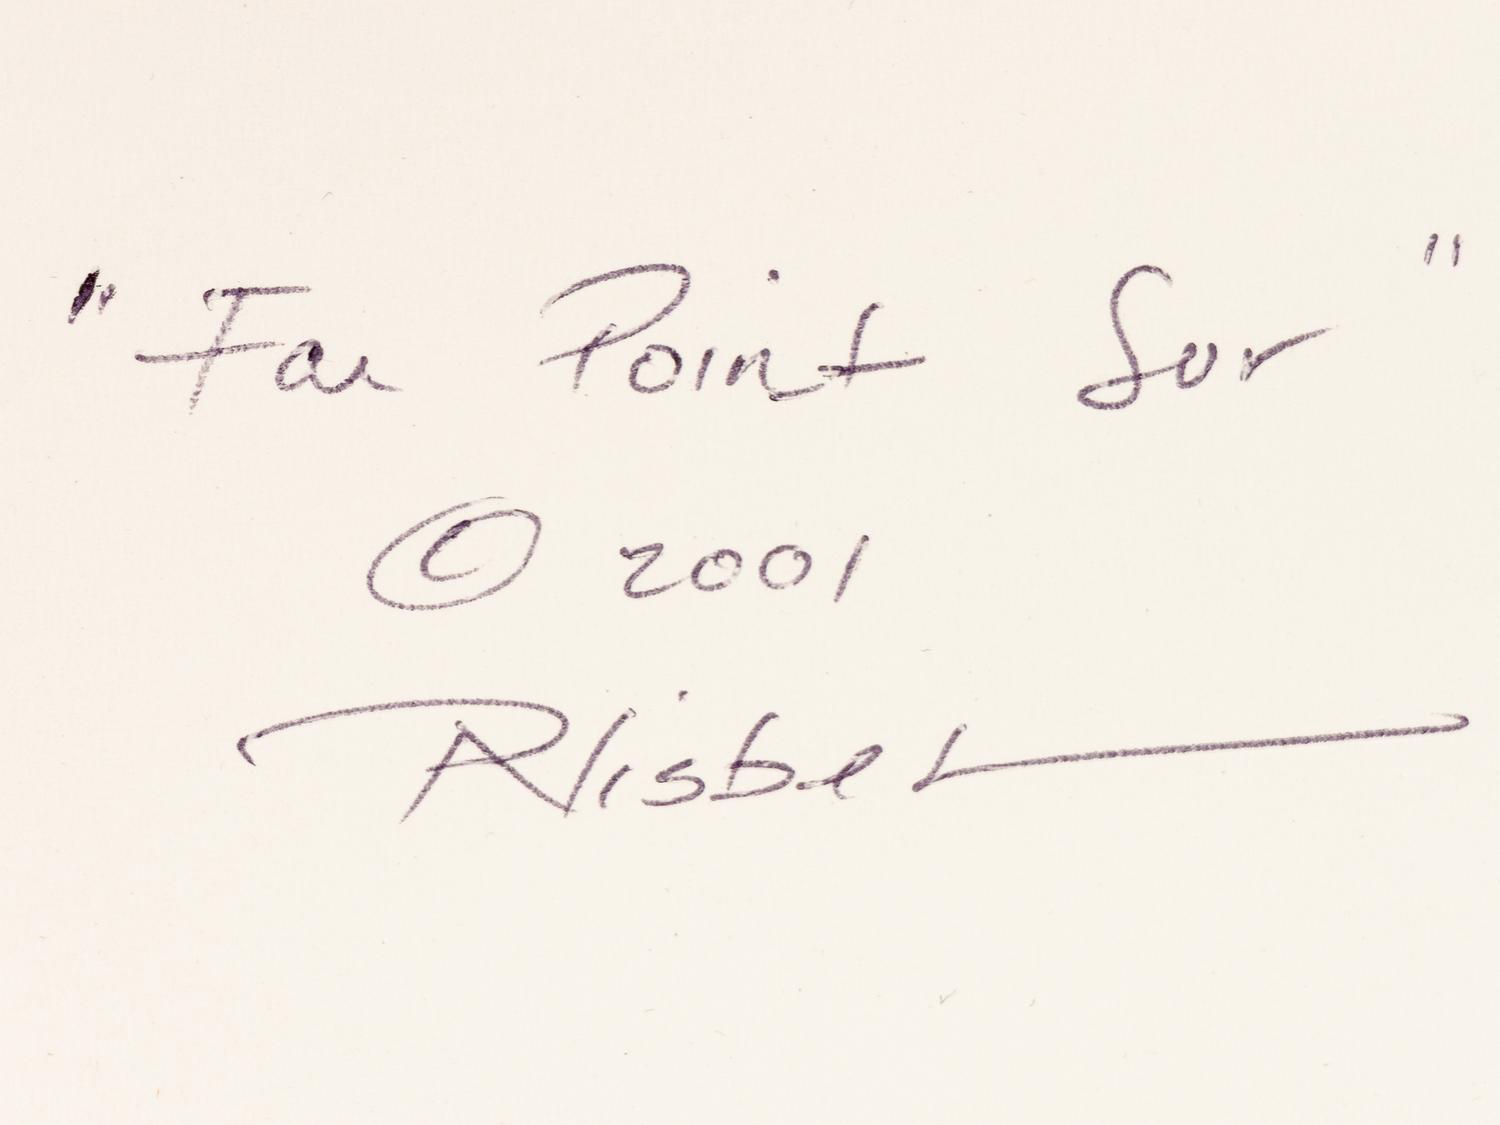 "Far Point Sur"
© 2001
RNisbet